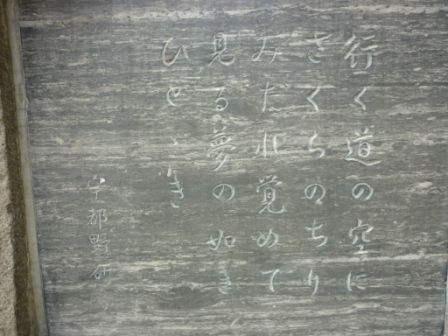 行く道の空に
さくらのちり
みだれ覚めて
見る夢の如き
ひとゝき
宇都野研